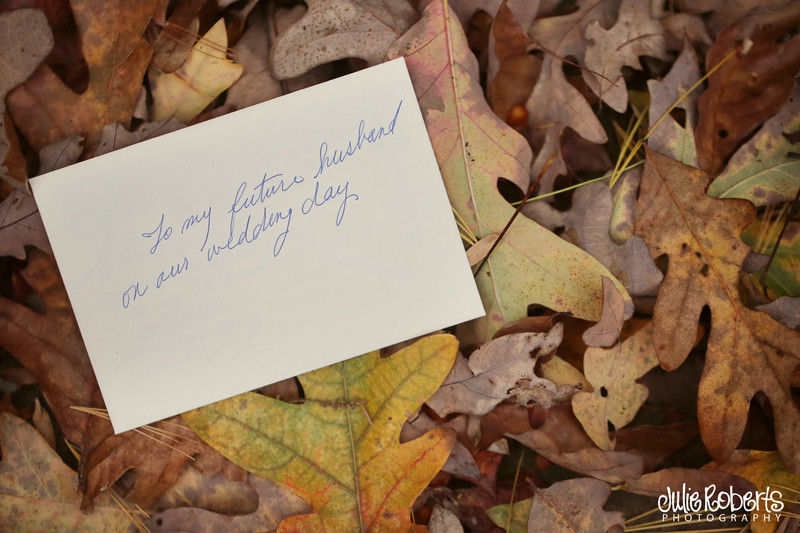 To my future husband
on our wedding day
Julie Roberts
PHOTOGRAPHY